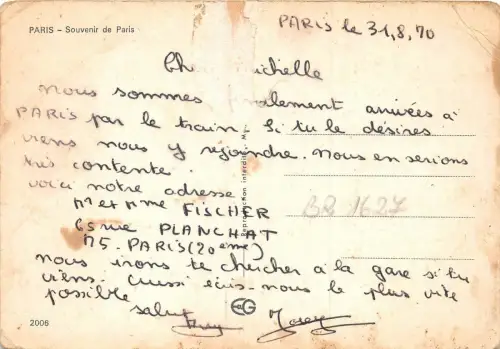 PARIS – Souvenir de Paris
PARIS le 31.8.70
Michelle
nous sommes arrivées à
PARIS par le train. Si tu le désires
viens nous y rejoindre. nous en serions
très contente.
voici notre adresse
Mr et Mme FISCHER
65 rue PLANCHAT
75. PARIS (20ème)
nous irons te chercher à la gare si tu
viens. Aussi écris-nous le plus vite
possible
salut
BR 1627
Reproduction interdite
2006